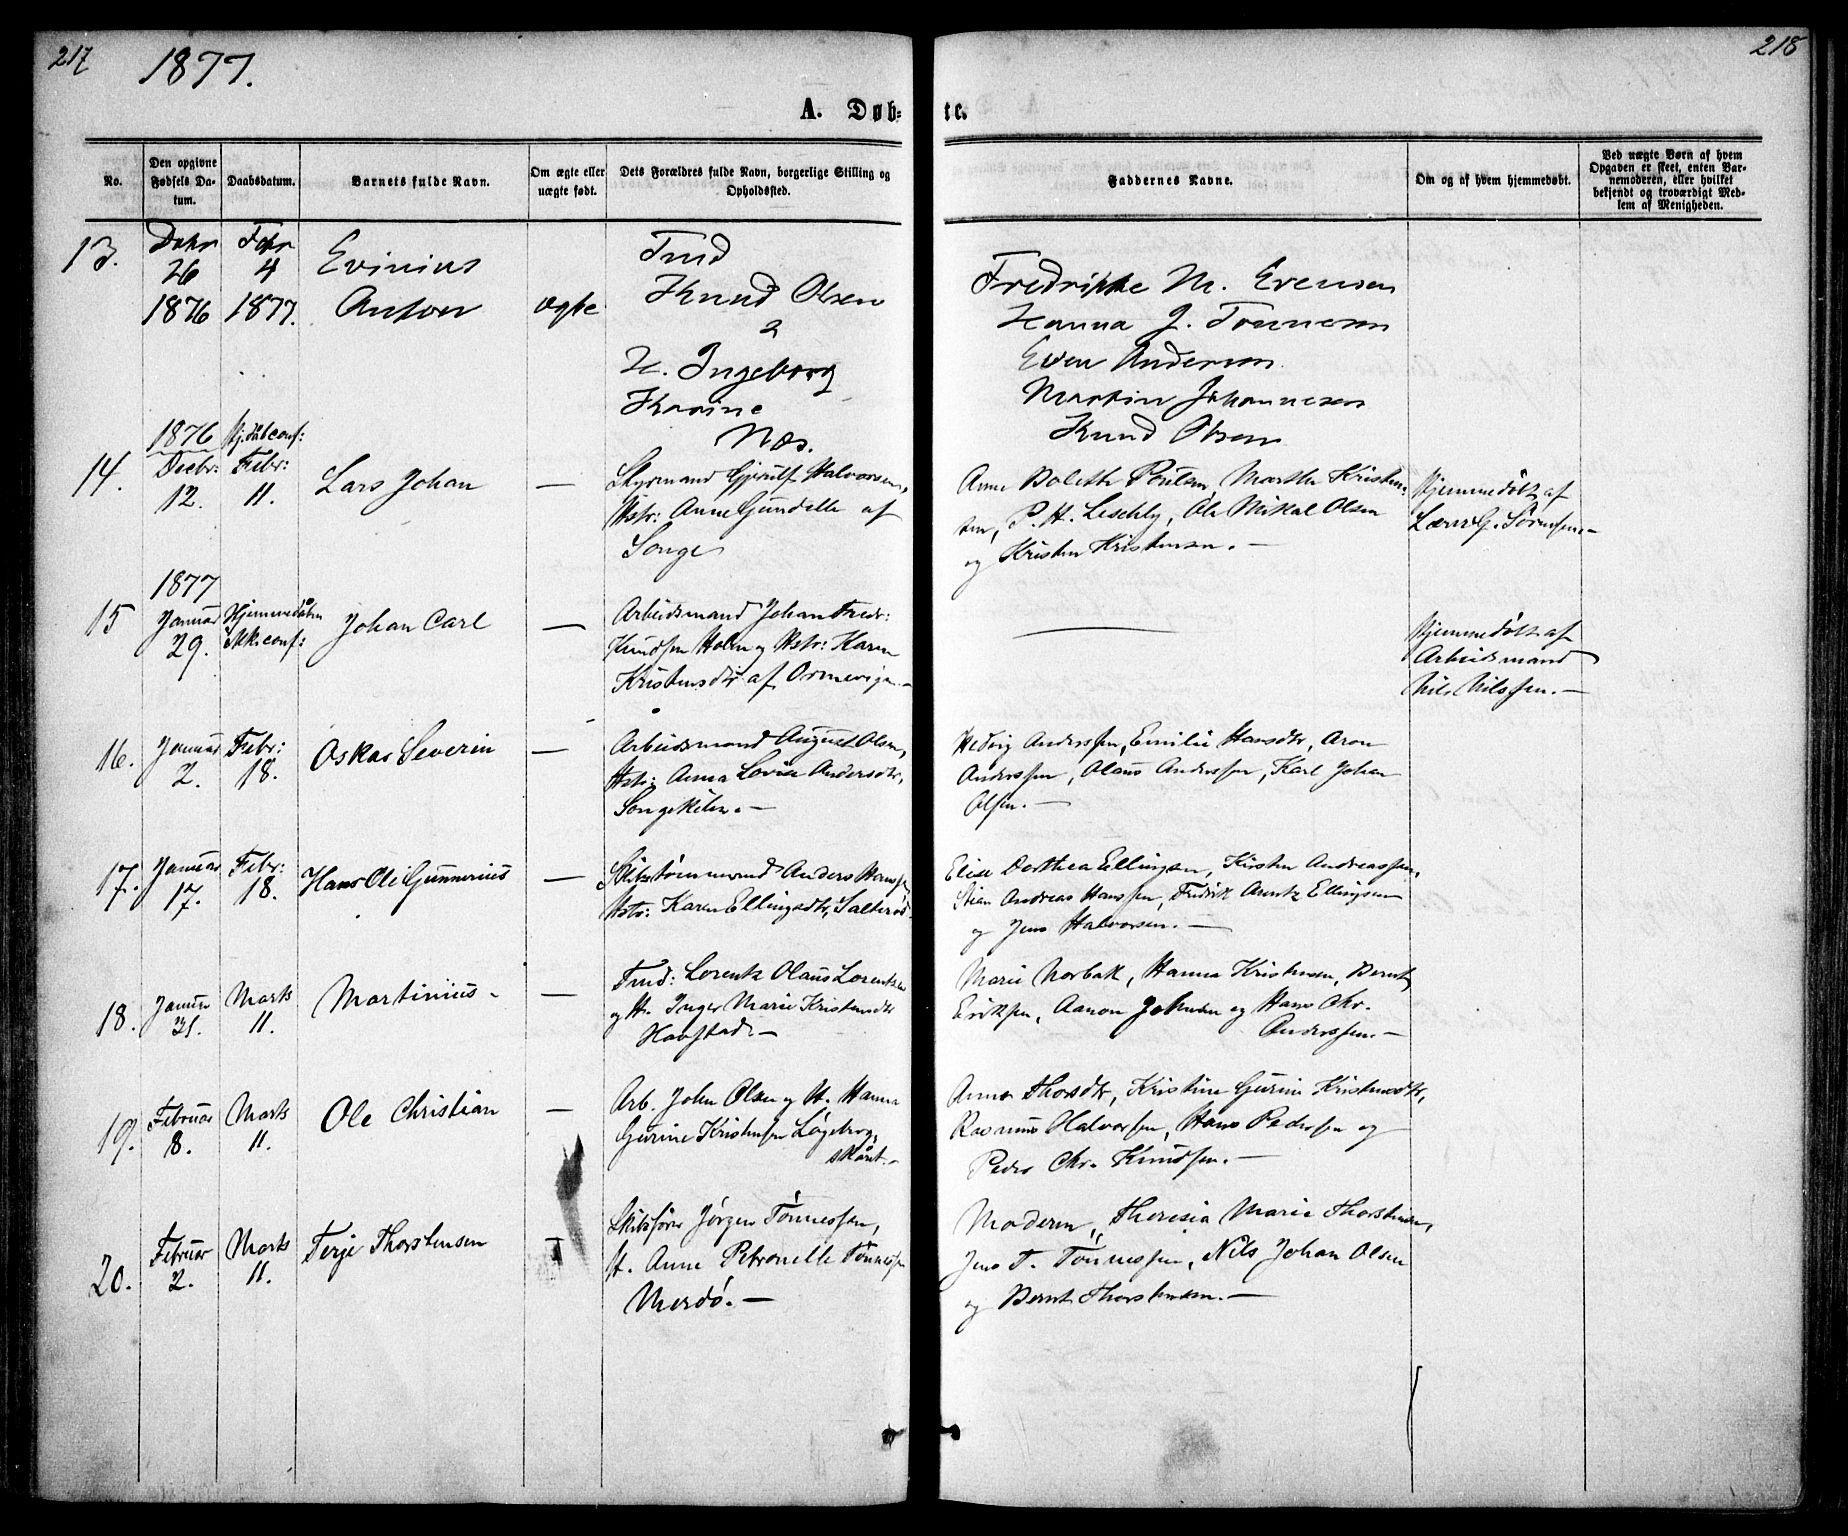 217
1877.
218
A. Døb-
te.
No.
Den opgivne Fødsels Da-tum.
Daabsdatum.
Barnets fulde Navn.
Om ægte eller uægte født.
Dets Forældres fulde Navn, borgerlige Stilling og Opholdssted.
Faddernes Navne.
Om og af hvem hjemmedøbt.
Ved uægte Børn af hvem Opgaven er skeet, enten Bar-nemoderen, eller hvilket bekjendt og troværdigt Med-lem af Menigheden.
13.
Dcbr
26
1876
Febr
4
1877.
Evinius
Anton
ægte
Tmd
Knud Olsen
&
H. Ingeborg
Karine
Næs.
Fredrikke M. Evensen
Hanna J. Tönnesen
Even Andersen
Martin Johannesen
Knud Olsen
14.
1876
Decbr:
12.
Hj.döbt conf:
Febr:
11.
Lars Johan
—
Gjerulf Halvorsen,
Hstr: Anne Gundelle af
Songe
Anne Bolethe Poulsen, Marthe Kristen-
sen, P. H. Leschly, Ole Mikal Olsen
og Kristen Kristensen. —
Hjemmedöbt af
G. Sörensen. —
15
1877
Januar
29.
Hjemmedöbt
Ikk.conf:
Johan Carl
—
Arbeidsmand Johan Fredr:
Knudsen Holm og Hstr: Karen
Kristensdtr af Ormevigen. —
—
Hjemmedöbt af
Arbeidsmand
Nils Nilssen. —
16.
Januar
2.
Febr:
18.
Oskar Severin
—
Arbeidsmand August Olsen,
Hstr: Anna Lovise Andersdtr,
Songekilen. —
Hedvig Anderssen, Emilie Hansdtr, Aron
Anderssen, Olaus Anderssen, Karl Johan
Olsen. —
17.
Januar
17.
Febr:
18.
Hans Ole Gunnerius
—
Skibstömmermand Anders Hanssen,
Hstr: Karen Ellingsdtr, Salteröd.
Elise Dorthea Ellingsen, Kirsten Andreassen,
Stian Andreas Hanssen, Fredrik Arntz Ellingsen
og Jens Halvorsen. —
18.
Januar
31.
Marts
11.
Martinius.
—
Tmd: Lorentz Olaus Lorentzen
og H. Inger Marie Kristensdtr
Havstad. —
Marie Norbak, Hanna Kristensen, Bernt
Eriksen, Aanon Johnsen og Hans Chr.
Anderssen. —
19.
Februar
8.
Marts
11.
Ole Christian
—
Arb. John Olsen og H. Hanna
Gurine Kristensen Lögeberg-
skåret. —
Anna Thorsdtr, Kristine Gurine Kristensdtr,
Rasmus Halvorsen, Hans Pedersen og
Peder Chr. Knudsen. —
20.
Februar
2.
Marts
11.
Terje Thorstensen
Skibsförer Jörgen Tönnessen,
H. Anne Petronelle Tönnessen
Merdö. —
Moderen, Theresia Marie Thorstensen,
Jens T. Tönnessen, Nils Johan Olsen
og Bernt Thorstensen. —